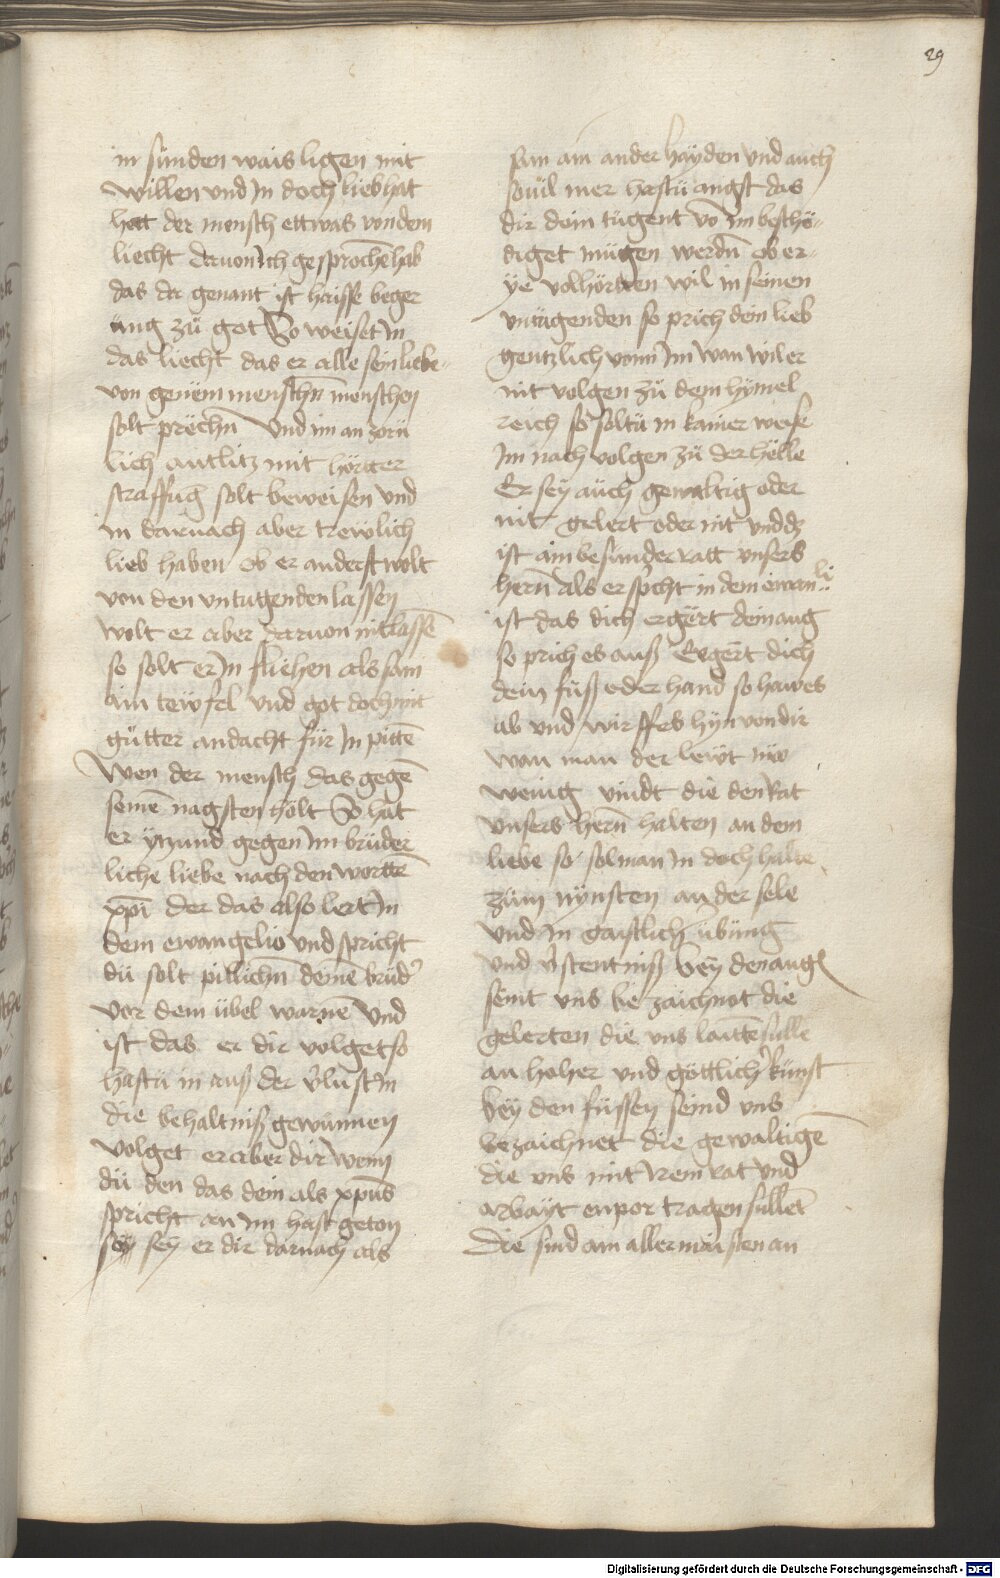 29
in sünden wais ligen mit
willen vnd in doch lieb hat
hett der mensch ettwas von dem
liecht dauon ich gesprochē hab
das da genant ist haisse beger
ung zü got So weiset in
das liecht das er alle sein liebe
von genem menschn̄ menschen
solt prechn̄ Vnd im an zorn
lich antlitz mit hörter
straffūg solt beweisen vnd
in darnach aber trewlich
lieb haben ob er anderst wolt
von den vntugenden lassen
wolt er aber daruon nit lassē
so solt er in fliehen als sam
ain tewfel vnd got doch mit
gütter andacht für in pittē
Wen der mensch das gegē
seinē nagsten holt So hat
er ytzund gegen im brüder
liche liebe nach den wortē
xp̄i der das also lert in
dem ewangelio vnd spricht
dü solt pillichn̄ deinē brüd'
vor dem übel warnē vnd
ist das er dir volget so
hastü in auß der v'lust in
die behaltniß gewunnen
volget er aber dir wenn
dü den das dein als xp̄us
spricht an im hast geton
sey sey er dir darnach als
sam ain ander hayden vnd auch
souil mer hastü angst das
dir dein tügent vō im beschö-
diget mügen werdn̄ ob er-
ye volhörtten wil in seinen
vntügenden so prich dein lieb
gentzlich vonn im wan wil er
nit volgen zü dem hymel
reich so soltü in kainer weise
im nach volgen zü der hëlle
Er sey aüch gewaltig oder
nit gelert oder nit vnd dz
ist ain besunder ratt vnsers
hern̄ als er sp'cht in dem ewan
li
ist das dich ergërt dein aug
so prich es auß Ergërt dich
dein füß oder hand so haw es
ab vnd wirff es hyn von dir
wan man der lewt nw
wenig vindt die den Rat
vnsers hern̄ halten an dem
liebe so sol man in doch haltē
zum mynsten an der sele
vnd in gaistlich übüng
vnd v'stentniß Bey den aug
seint vns be zaichnot die
gelerten die vns laittē sülle
an hoher vnd göttlich' künst
bey den füssen seind vns
bezaichnet die gewaltigē
die vns mit irem rat vnd
arbayt enpor tragen süllēt
Die sind am aller maisten an
Digitalisierung gefördert durch die Deutsche Forschungsgemeinschaft - DFG